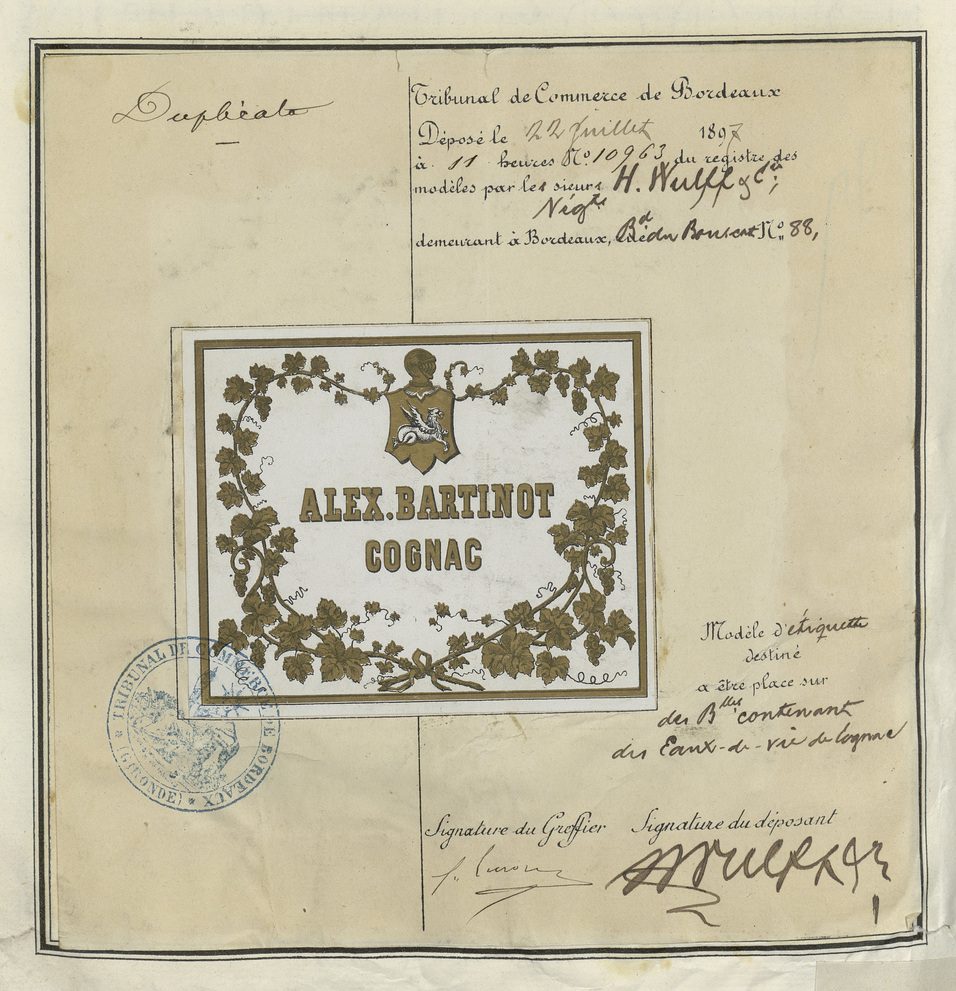 Duplicata
Tribunal de Commerce de Bordeaux
Déposé le 22 Juillet 1897
à 11 heures No 10963 du registre des
modèles par les sieurs H. Wulff & Cie,
Négts
demeurant à Bordeaux, Bd du Bouscat No 88,
ALEX. BARTINOT
COGNAC
Modèle d'étiquette
destiné
a être place sur
des Blles contenant
des Eaux-de-vie de Cognac
TRIBUNAL DE COMMERCE DE BORDEAUX
(GIRONDE)
Signature du Greffier Signature du déposant
H Wulff & Cie